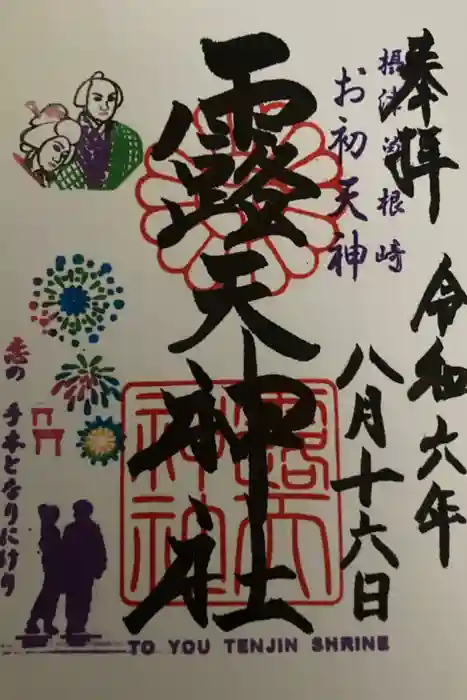 奉拝
令和六年
八月十六日
摂津曽根崎
お初天神
露天神社
露天神社
恋の手本となりにけり
TO YOU TENJIN SHRINE